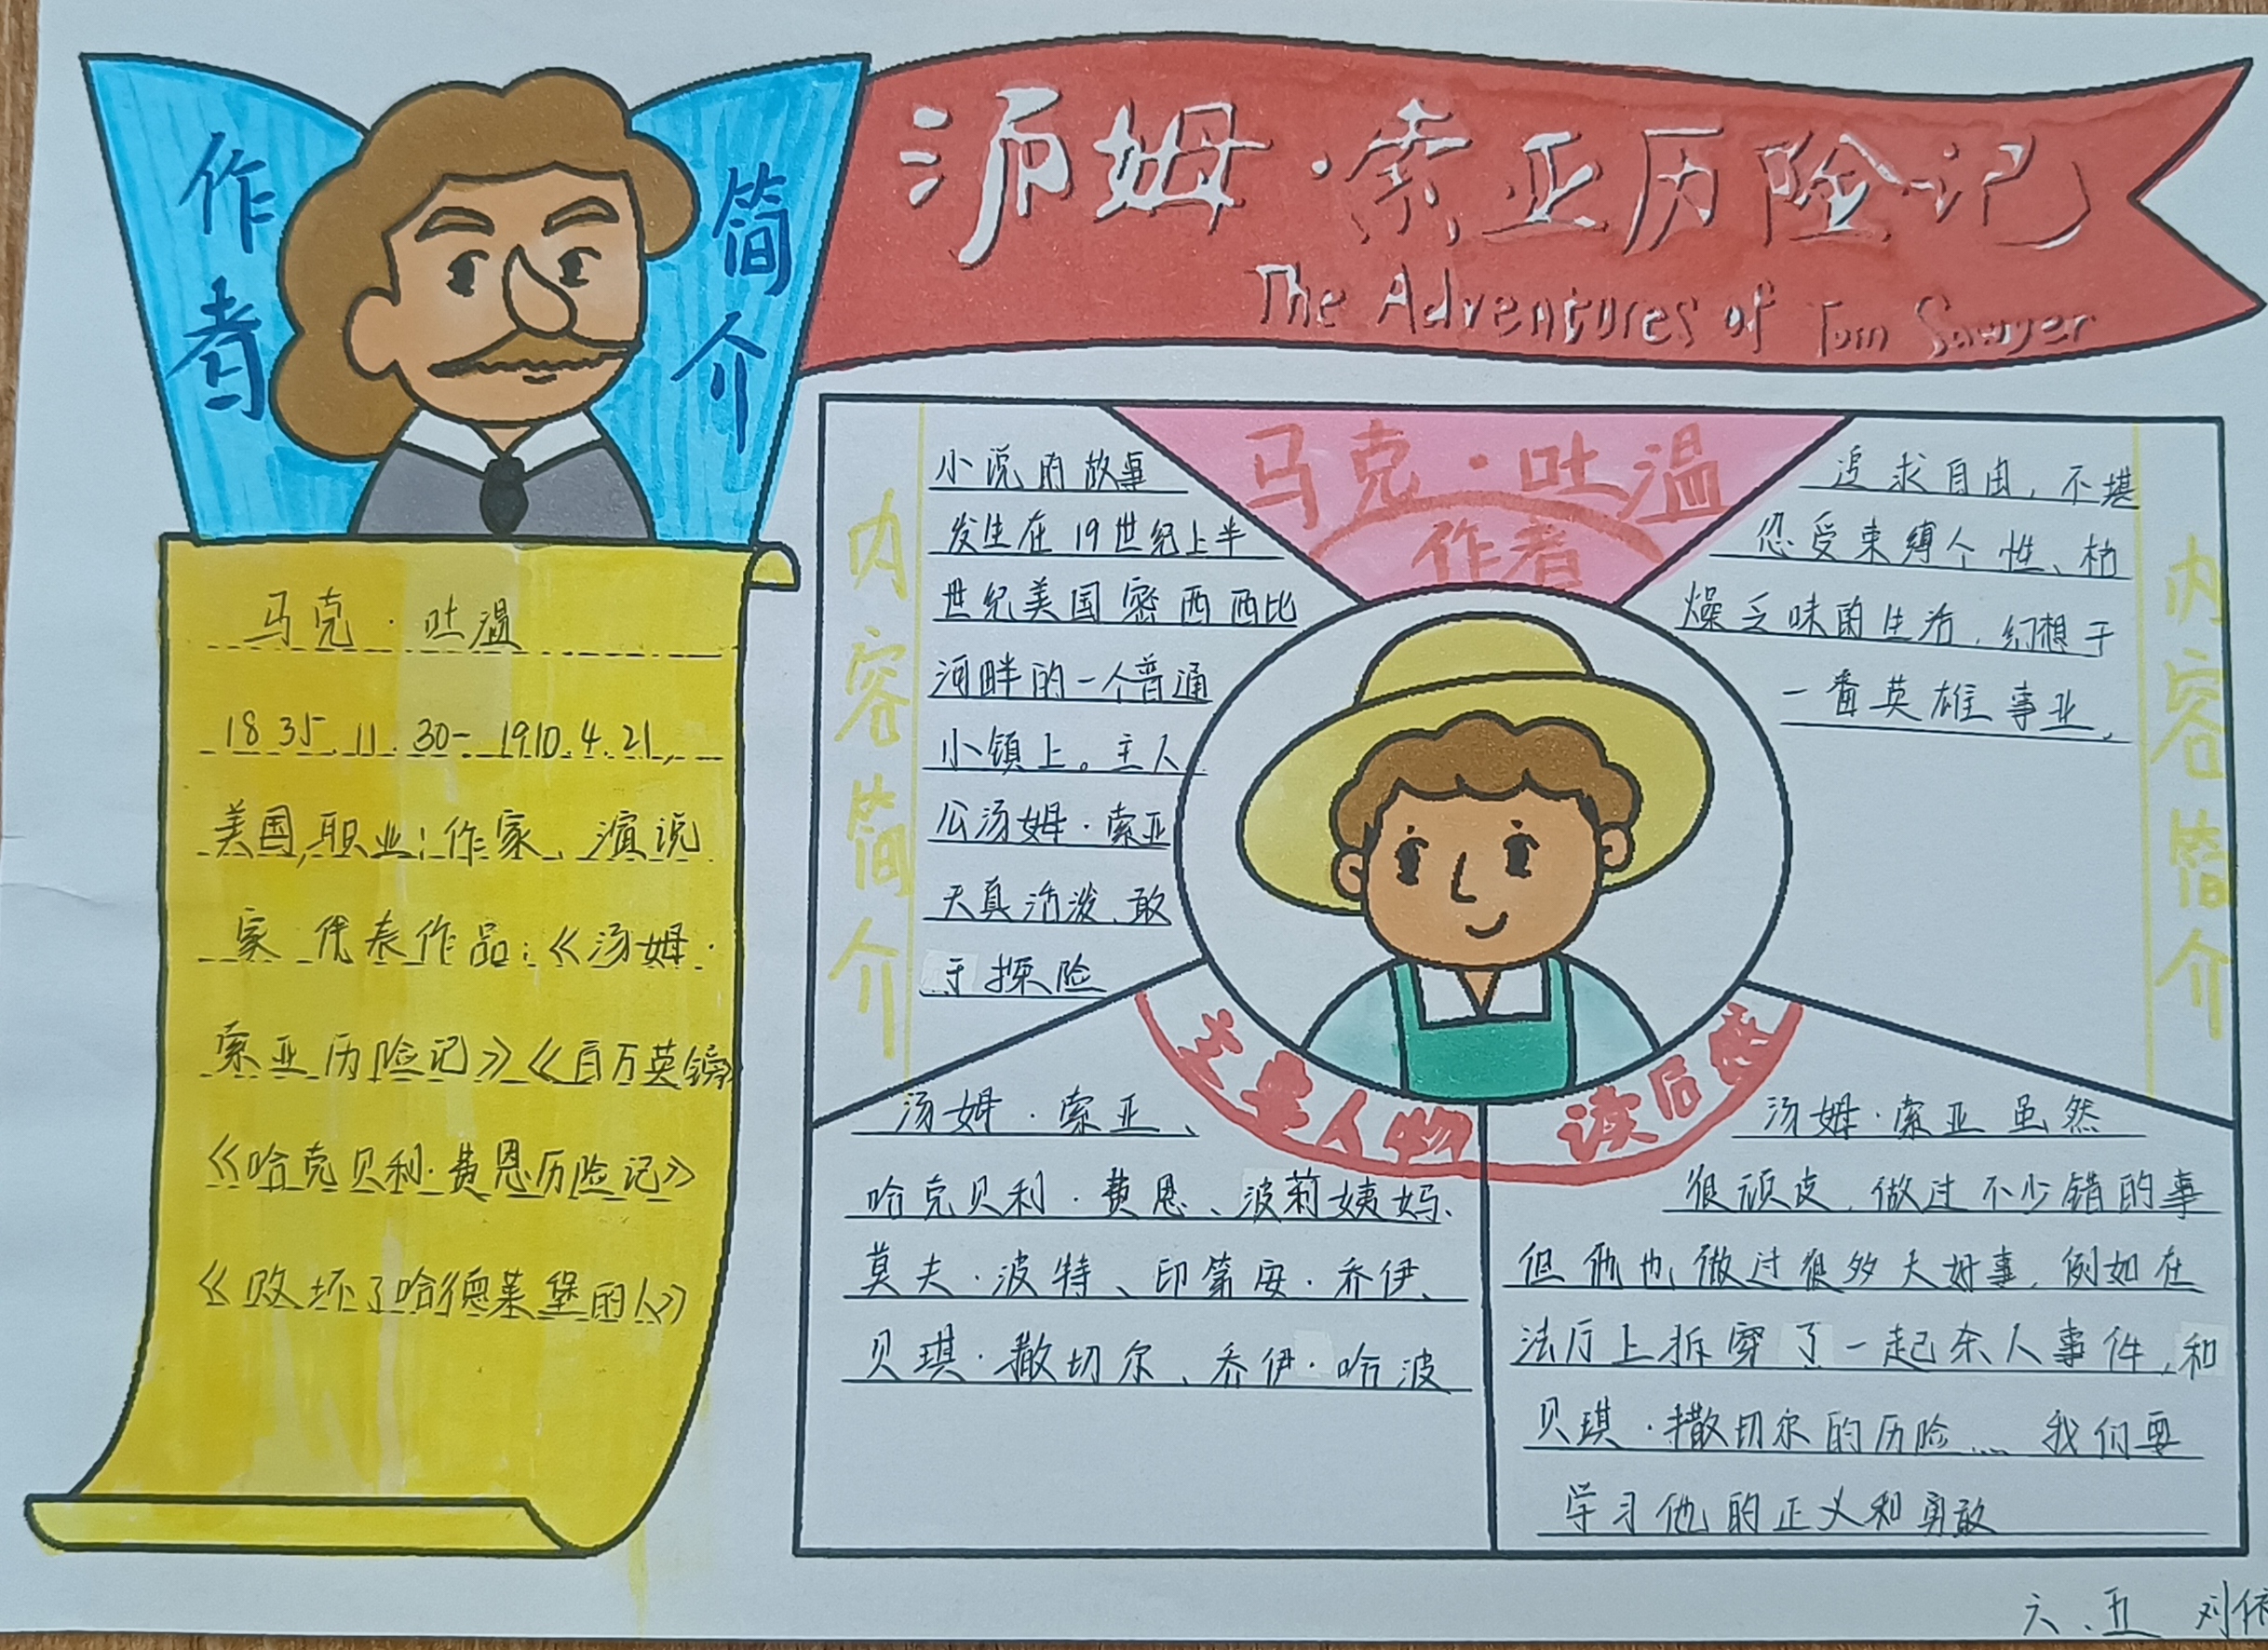 作者
简介
马克·吐温
1835.11.30-1910.4.21,
美国,职业:作家、演说
家 代表作品:《汤姆·
索亚历险记》《百万英镑》
《哈克贝利·费恩历险记》
《败坏了哈德莱堡的人》
汤姆·索亚历险记
The Adventures of Tom Sawyer
马克·吐温
作者
内容简介
小说的故事
发生在19世纪上半
世纪美国密西西比
河畔的一个普通
小镇上。主人
公汤姆·索亚
天真活泼、敢
于探险
追求自由,不堪
忍受束缚个性、枯
燥乏味的生活,幻想干
一番英雄事业,
内容简介
主要人物
汤姆·索亚、
哈克贝利·费恩、波莉姨妈、
莫夫·波特、印第安·乔伊、
贝琪·撒切尔、乔伊·哈波
读后感
汤姆·索亚虽然
很顽皮,做过不少错的事
但他也做过很多大好事,例如在
法厅上拆穿了一起杀人事件,和
贝琪·撒切尔的历险…… 我们要
学习他的正义和勇敢
六、五 刘